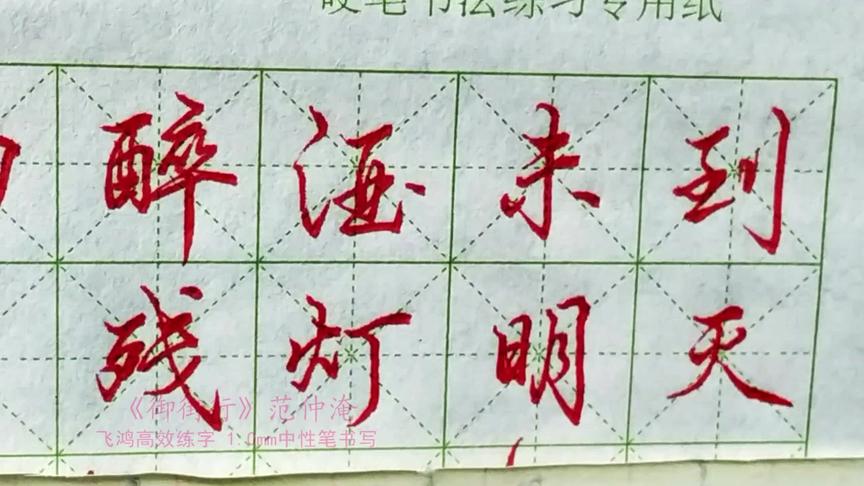 硬笔书法练习专用纸
醉酒未到
残灯明灭
《御街行》范仲淹
飞鸿高效练字 1.0mm中性笔书写